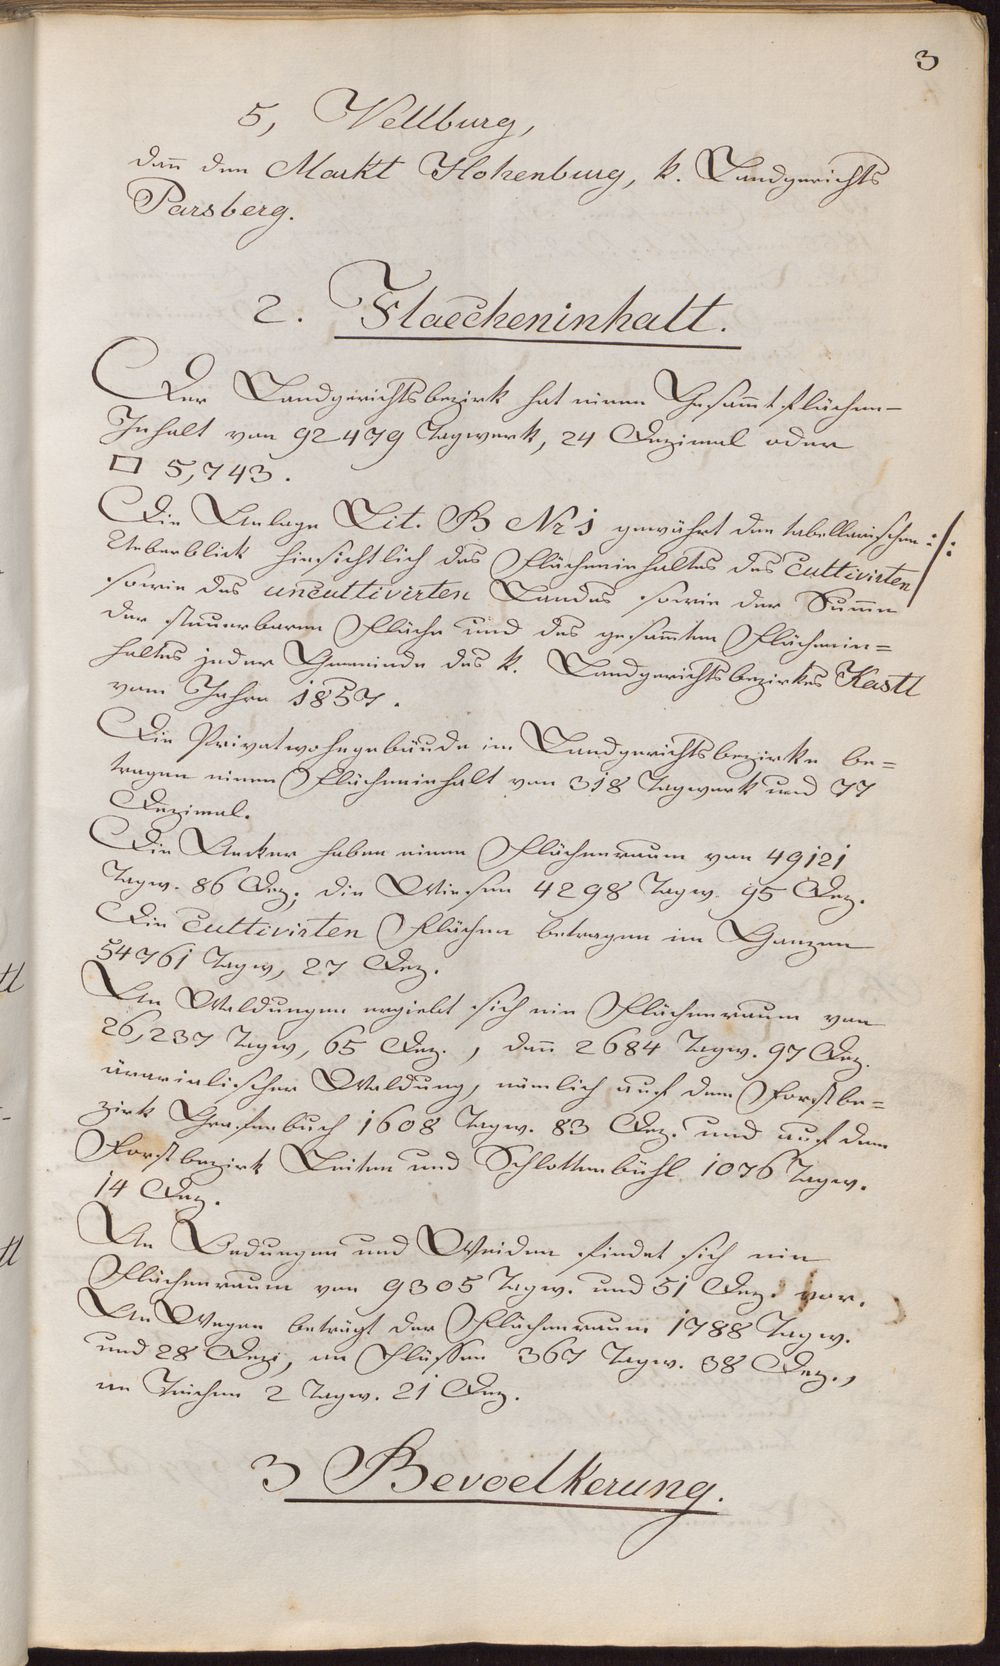 3
5, Vellburg,
dan̄ den Markt Hohenburg, k. Landgerichts
Parsberg.
2. Flaecheninhalt.
Der Landgerichtsbezirk hat einen Gesam̄tflächen-
Inhalt von 92479 Tagwerk, 24 Dezimal oder
□ 5,743.
Die Anlage Lit. B Nr 1 gewährt den tabellarischen ./.
Ueberblick hinsichtlich des Flächeninhaltes des cultivirten
sowie des uncultivirten Landes sowie der Sum̄e
der steuerbaren Fläche und des gesam̄ten Flächenin=
haltes jeder Gemeinde des k. Landgerichtsbezirkes Kastl
vom Jahre 1857.
Die Privatwohngebäude im Landgerichtsbezirke be=
tragen einen Flächeninhalt von 318 Tagwerk und 77
Dezimal.
Die Aecker haben einen Flächenraum von 49121
Tagw. 86 Dez; die Wiesen 4298 Tagw. 95 Dez.
Die cultivirten Flächen betragen im Ganzen
54761 Tagw, 27 Dez.
An Waldungen ergiebt sich ein Flächenraum von
26,237 Tagw, 65 Dez., dan̄ 2684 Tagw. 97 Dez.
ärarialischer Waldung, nämlich auf dem Forstbe=
zirk Grafenbuch 1608 Tagw. 83 Dez. und auf dem
Forstbezirk Leiten und Schlottenbühl 1076 Tagw.
14 Dez.
An Oedungen und Weiden findet sich ein
Flächenraum von 9305 Tagw. und 51 Dez. vor.
An Wegen beträgt der Flächenraum 1788 Tagw.
und 28 Dezi, an Flüssen 367 Tagw. 38 Dez.,
an Teichen 2 Tagw. 21 Dez.
3 Bevoelkerung.